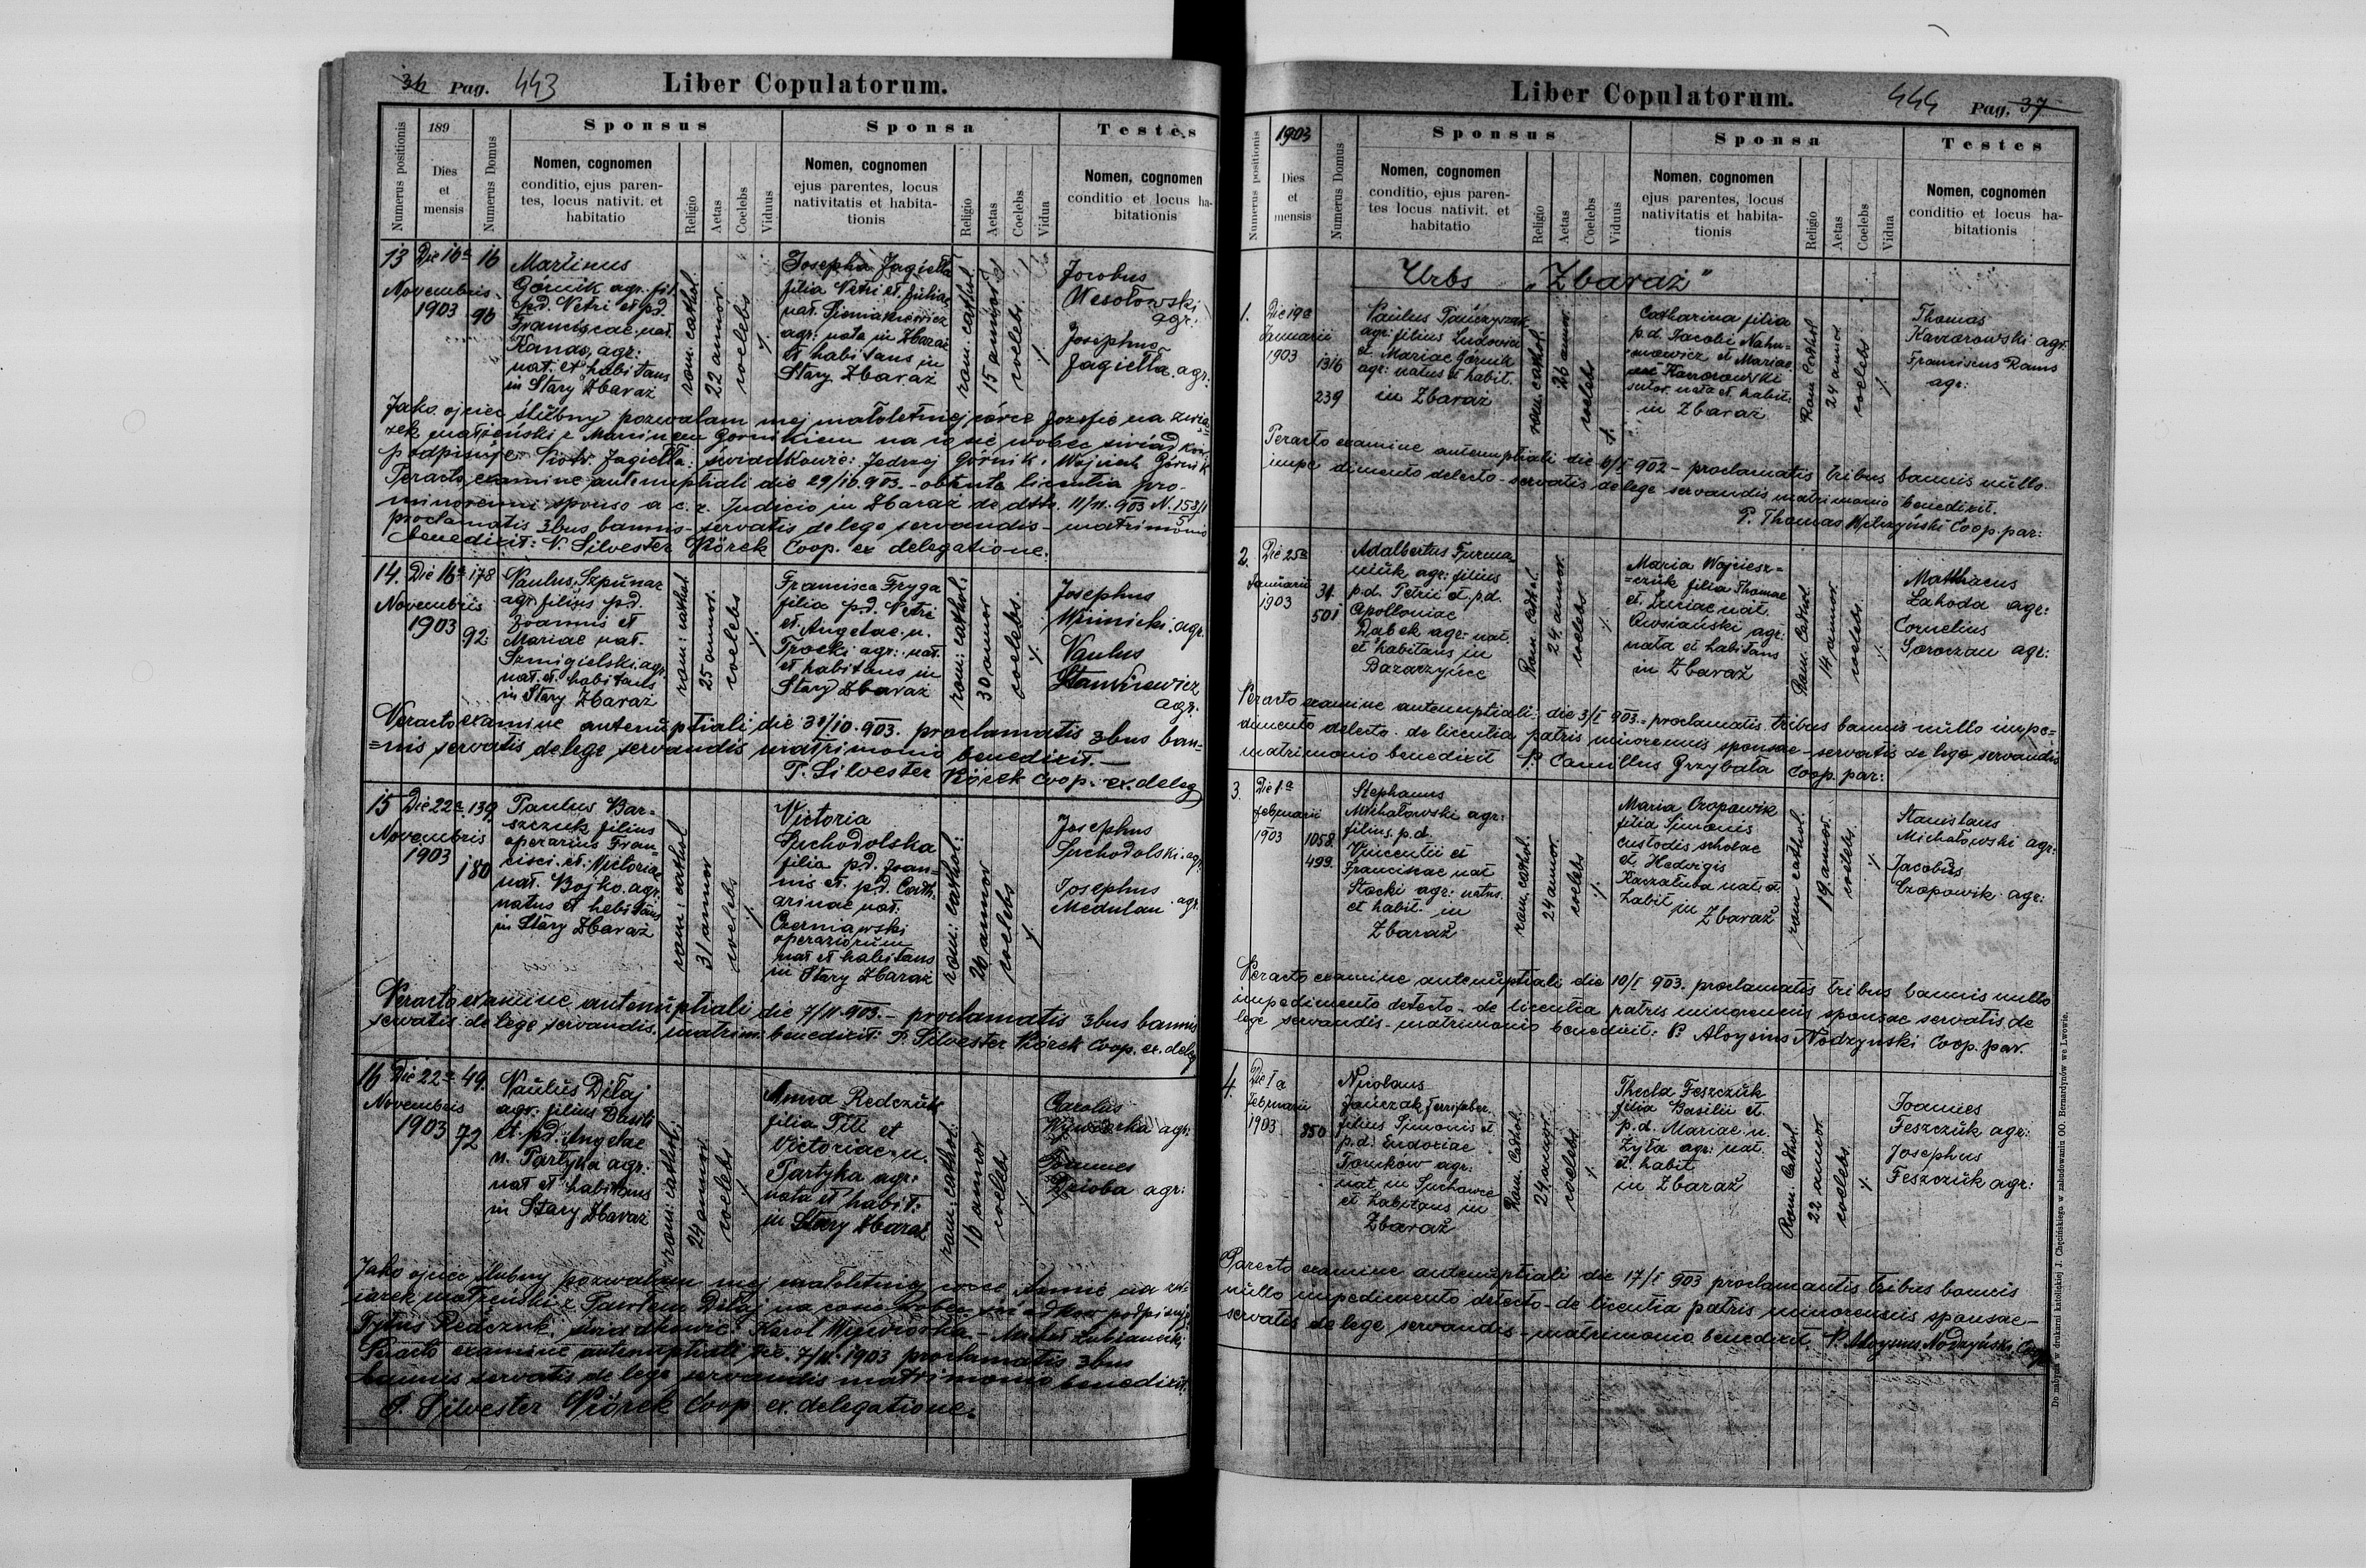 36 Pag. 443 Liber Copulatorum.
Numerus positionis
189
Dies
et
mensis
Numerus Domus
Sponsus
Nomen, cognomen
conditio, ejus paren-
tes, locus nativit. et
habitatio
Religio
Aetas
Coelebs
Viduus
Sponsa
Nomen, cognomen
ejus parentes, locus
nativitatis et habita-
tionis
Religio
Aetas
Coelebs
Vidua
Testes
Nomen, cognomen
conditio et locus ha-
bitationis
13 Die 16a
Novembris
1903
16
96
Martinus
Górnik agr. fil.
p.d. Petri et p.d.
Franciscae nat.
agr:
nat. et habitans
in Stary Zbaraż
rom. cathol.
22 annor.
coelebs
Josepha Jagiełła
filia Petri et Juliae
nat.
agr: nata in Zbaraż
et habitans in
Stary Zbaraż
rom. cathol.
15 annor
coelebs.
Jacobus
Wesołowski
agr:
Josephus
Jagiełła agr:
Jako ojciec ślubny pozwalam mej małoletniej córce Józefie na zwią-
zek małżeński z Marcinem Górnikiem na co się wobec świadków
podpisuję: Piotr Jagiełła: świadkowie: Jędrzej Górnik, Wojciech Górnik
Peracto examine antenuptiali die 29/10.903. - obtenta licentia pro
minorenni sponso a c. r. Judicio in Zbaraż de dto. 11/11.903 N.
proclamatis 3bus bannis - servatis de lege servandis - matrimonio
benedixit: P. Silvester Piórek Coop. ex delegatione.
14. Die 16a
Novembris
1903
178
92
Paulus Szpunar
agr. filius p.d.
Joannis et
Mariae nat.
Szmigielski agr.
nat. et habitans
in Stary Zbaraż
rom: cathol
25 annor.
coelebs
Francisca Fryga
filia p.d. Petri
et Angelae n.
Trocki agr: nat.
et habitans in
Stary Zbaraż
rom: cathol:
30 annor
coelebs.
Josephus
Winnicki agr.
Paulus
agr.
Peracto examine antenuptiali die 31/10.903. proclamatis 3bus ban-
=nis servatis de lege servandis matrimonio benedixit. -
P. Silvester Piórek Coop. ex. deleg
15 Die 22a
Novembris
1903
139
180
Paulus Bar-
szczuk filius
operarius Fran-
cisci et Victoriae
nat. Bojko agr.
natus et habitans
in Stary Zbaraż
rom: cathol
31 annor
coelebs
Victoria
Suchodolska
filia p.d. Joan-
nis et p.d. Cath-
arinae nat.
Czerniawski
operariorum
nat et habitans
in Stary Zbaraż
rom: cathol:
26 annor
coelebs
Josephus
Suchodolski agr.
Josephus
Medulan agr.
Peracto examine antenuptiali die 7/11.903. - proclamatis 3bus bannis
servatis de lege servandis matrim: benedixit: P. Silvester Piórek Coop. ex. deleg
16 Die 22a
Novembris
1903
49.
72
Paulus Diłaj
agr: filius Basili
et p.d. Angelae
n. Partyka agr:
nat et habitans
in Stary Zbaraż
rom: cathol:
24 annor
coelebs
Anna Redczuk
filia Titi et
Victoriae n.
Partyka agr:
nata et habit:
in Stary Zbaraż
rom: cathol:
16 annor
coelebs
Carolus
Wywiórka agr:
Joannes
Dzioba agr:
Jako ojciec ślubny pozwalam mej małoletniej córce Annie na zwi-
ązek małżeński z Pawłem Diłaj na co się wobec świadków podpisuję
Tytus Redczuk. świadkowie: Karol Wywiórka -
Peracto examine antenuptiali die 7/11.1903 proclamatis 3bus
bannis servatis de lege servandis matrimonio benedixit.
P. Silvester Piórek Coop ex. delegatione.
Liber Copulatorum. 444 Pag. 37
Numerus positionis
1903
Dies
et
mensis
Numerus Domus
Sponsus
Nomen, cognomen
conditio, ejus paren-
tes locus nativit. et
habitatio
Religio
Aetas
Coelebs
Viduus
Sponsa
Nomen, cognomen
ejus parentes, locus
nativitatis et habita-
tionis
Religio
Aetas
Coelebs
Vidua
Testes
Nomen, cognomen
conditio et locus ha-
bitationis
Urbs „Zbaraż"
1. Die 19a
Januarii
1903
1316
239
Paulus
agr: filius Ludovici
et Mariae Górnik
agr: natus et habit.
in Zbaraż
rom. cathol.
26 annor.
coelebs
Catharina filia
p.d. Jacobi
et Mariae
sutor. nata et habit:
in Zbaraż
Rom. Cathol
24 annor
coelebs
Thomas
agr.
Franciscus Rams
agr:
Peracto examine antenuptiali die 6/I 902 - proclamatis tribus bannis nullo
impedimento detecto - servatis de lege servandis matrimonio benedixit.
P. Thomas Coop. par:
2. Die 25a
Januarii
1903
31
501
Adalbertus Furma
niuk agr: filius
p.d. Petri et p.d.
Apolloniae
Dąbek agr: nat.
et habitans in
Bazarzyńce
Rom. Cathol.
24 annor.
coelebs
Maria Wojciesz=
=czuk filia Thomae
et Luciae nat.
Owsiański agr:
nata et habitans
in Zbaraż
Rom. Cathol.
14 annor.
coelebs
Matthaeus
Zahoda agr:
Cornelius
agr:
Peracto examine antenuptiali: die 3/I 903. = proclamatis tribus bannis nullo impe=
dimento detecto - de licentia patris minorennis sponsae - servatis de lege servandis
matrimonio benedixit P. Camillus Grzybała Coop. par:
3. Die 1a
Februarii
1903
1058.
499.
Stephanus
Michałowski agr:
filius p.d.
Vincentii et
Franciscae nat
Stocki agr: natus
et habit. in
Zbaraż
rom. cathol.
24 annor.
coelebs
Maria Czopowik
filia Simonis
custodis scholae
et Hedvigis
nat: et
habit in Zbaraż
rom cathol.
19 annor.
coelebs.
Stanislaus
Michałowski agr:
Jacobus
Czopowik agr:
Peracto examine antenuptiali die 10/I 903. proclamatis tribus bannis nullo
impedimento detecto - de licentia patris minorennis sponsae servatis de
lege servandis - matrimonio benedixit: P. Aloysius Nodzyński Coop. par.
4. Die 1a
Februarii
1903
850
Nicolaus
Jańczak ferrifaber
filius Simonis et
p.d. Eudoxiae
Tomków agr:
nat. in
et habitans in
Zbaraż
Rom. Cathol.
24 annor.
coelebs
Thecla Feszczuk
filia Basilii et
p.d. Mariae n.
Zyła agr: nat
et habit
in Zbaraż
Rom. Cathol.
22 annor
coelebs.
Joannes
Feszczuk agr:
Josephus
Feszczuk agr:
Peracto examine antenuptiali die 17/I 903 proclamantis tribus bannis
nullo impedimento detecto - de licentia patris minorennis sponsae -
servatis de lege servandis - matrimonio benedixit P. Aloysius Nodzyński Coop
Do nabycia w drukarni katolickiej J. Chęcińskiego w zabudowaniu OO. Bernardynów we Lwowie.